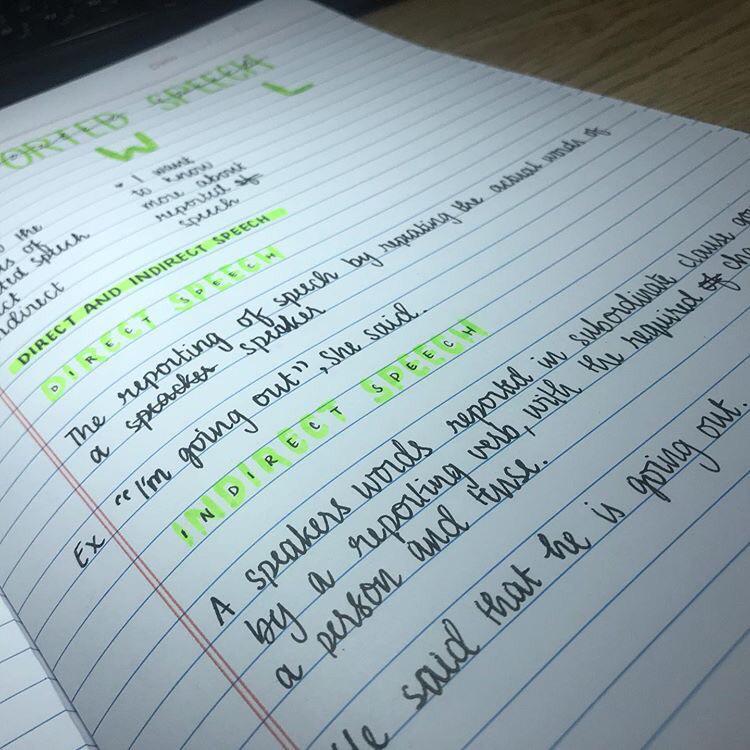 ORTED SPEECH
W L
• I want
to know
more about
reported of
speech
the
of
speech
indirect
DIRECT AND INDIRECT SPEECH
DIRECT SPEECH
The reporting of speech by repeating the actual words of
a speacker speaker
Ex "I'm going out", she said.
INDIRECT SPEECH
A speakers words reported in subordinate clause
by a reporting verb, with the required of
a person and tense.
He said that he is going out.